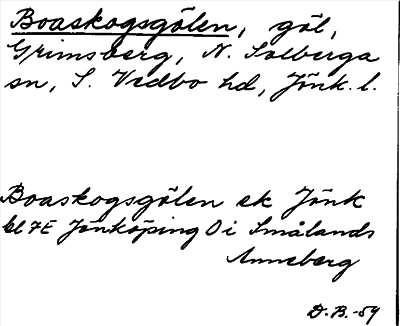 Boaskogsgölen, göl,
Grimsberg, N. Solberga
sn, S. Vedbo hd, Jönk. l.
Boaskogsgölen ek Jönk
bl 7E Jönköping O i Smålands
Anneberg
D.B. -59